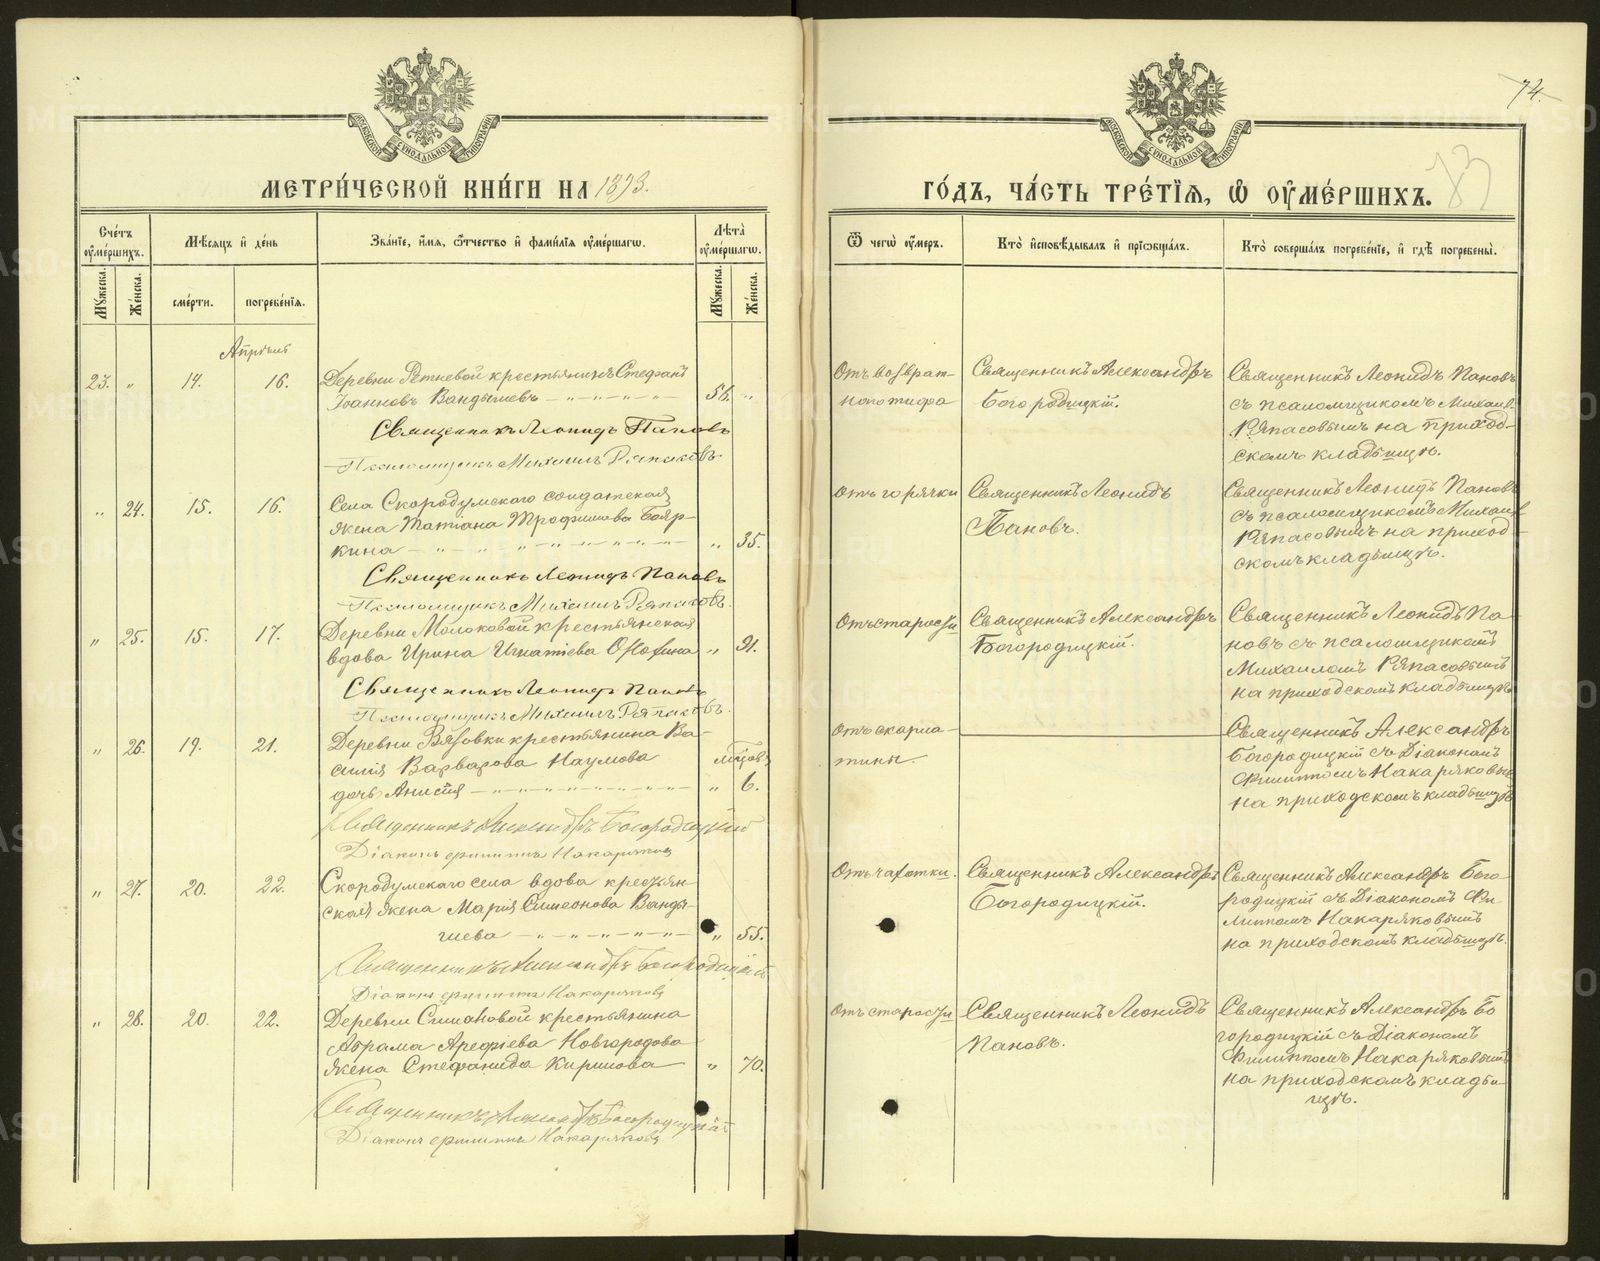 74.
83
МОСКОВСКОЙ СѴНОДАЛЬНОЙ ТИПОГРАФІИ
МОСКОВСКОЙ СѴНОДАЛЬНОЙ ТИПОГРАФІИ
МЕТРИ́ЧЕСКОЙ КНИ́ГИ НА 1893.
ГО́ДЪ, ЧА́СТЬ ТРЕ́ТІЯ, Ѡ҆ ОУ҆МЕ́РШИХЪ.
Сче́тъ оу҆ме́ршихъ.
Мѣ́сяцъ и҆ де́нь
Зва́нїе, и҆́мя, ѻ҆́тчество и҆ фами́лїя оу҆ме́ршагѡ.
Лѣ́та оу҆ме́ршагѡ.
Ѿ чегѡ̀ оу҆́меръ.
Кто̀ и҆сповѣ́дывалъ и҆ прїѡбща́лъ.
Кто̀ соверша́лъ погребе́нїе, и҆ гдѣ̀ погребены̀.
Мꙋ́жеска.
Же́нска.
сме́рти.
погребе́нїя.
Мꙋ́жеска.
Же́нска.
Апрѣль
23. „ 14. 16.
Деревни Ретневой крестьянинъ Стефанъ
Іоанновъ Вандышевъ 56. „
Священникъ Леонидъ Пановъ
Псаломщикъ Михаилъ Ряпасовъ.
Отъ возврат-
наго тифа
Священникъ Александръ
Богородицкій.
Священникъ Леонидъ Пановъ
съ псаломщикомъ Михаил.
Ряпасовымъ на приход-
скомъ кладбищѣ.
„ 24. 15. 16.
Села Скородумскаго солдатская
жена Татіана Трофимова Бояр-
кина „ 35.
Священникъ Леонидъ Пановъ
Псаломщикъ Михаилъ Ряпасовъ.
Отъ горячки
Священникъ Леонидъ
Пановъ.
Священникъ Леонидъ Пановъ
съ псаломщикомъ Михаил
Ряпасовымъ на приход-
скомъ кладбищѣ.
„ 25. 15. 17.
Деревни Молоковой крестьянская
вдова Ирина Игнатіева „ 91.
Священникъ Леонидъ Пановъ
Псаломщикъ Михаилъ Ряпасовъ.
Отъ старости
Священникъ Александръ
Богородицкій.
Священникъ Леонидъ Па-
новъ съ псаломщикомъ
Михаиломъ Ряпасовымъ
на приходскомъ кладбищѣ
„ 26. 19. 21.
Деревни Вязовки крестьянина Ва-
силія Варварова Наумова мѣсяцовъ
дочь Анисія „ 6.
Священникъ Александръ Богородицкій
Діаконъ Филиппъ Накаряковъ
Отъ скарла-
тины.
Священникъ Александръ
Богородицкій съ Діакономъ
Филиппомъ Накаряковымъ
на приходскомъ кладбищѣ
„ 27. 20. 22.
Скородумскаго села вдова крестьян-
ская жена Марія Симеонова Ванды-
шева „ 55.
Священникъ Александръ Богородицкій
Діаконъ Филиппъ Накаряковъ
Отъ чахотки.
Священникъ Александръ
Богородицкій.
Священникъ Александръ Бого-
родицкій съ Діакономъ Фи-
липпомъ Накаряковымъ
на приходскомъ кладбищѣ.
„ 28. 20. 22.
Деревни Симановой крестьянина
Абрама Арефіева Новгородова
жена Стефанида Кирилова „ 70.
Священникъ Александръ Богородицкій
Діаконъ Филиппъ Накаряковъ
Отъ старости
Священникъ Леонидъ
Пановъ.
Священникъ Александръ Бо
городицкій съ Діакономъ
Филиппомъ Накаряковымъ
на приходскомъ кладби-
щѣ.